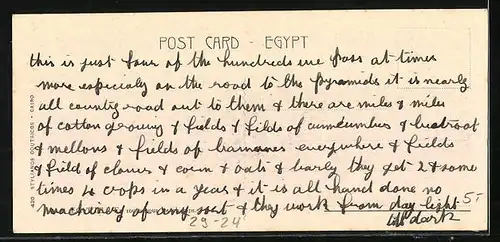 POST CARD - EGYPT
this is just four of the hundreds we pass at times
more especialy on the road to the pyramids it is nearly
all country road out to them & there are miles & miles
of cotton growing & fields & filds of cumcumbers & beetroot
& mellons & fields of bananes everywhere & fields
& field of clover & corn & oats & barly they get 2 & some
times 4 crops in a year & it is all hand done no
machinery of any sort & they work from day light
till dark
5-
29-24
420
CAIRO